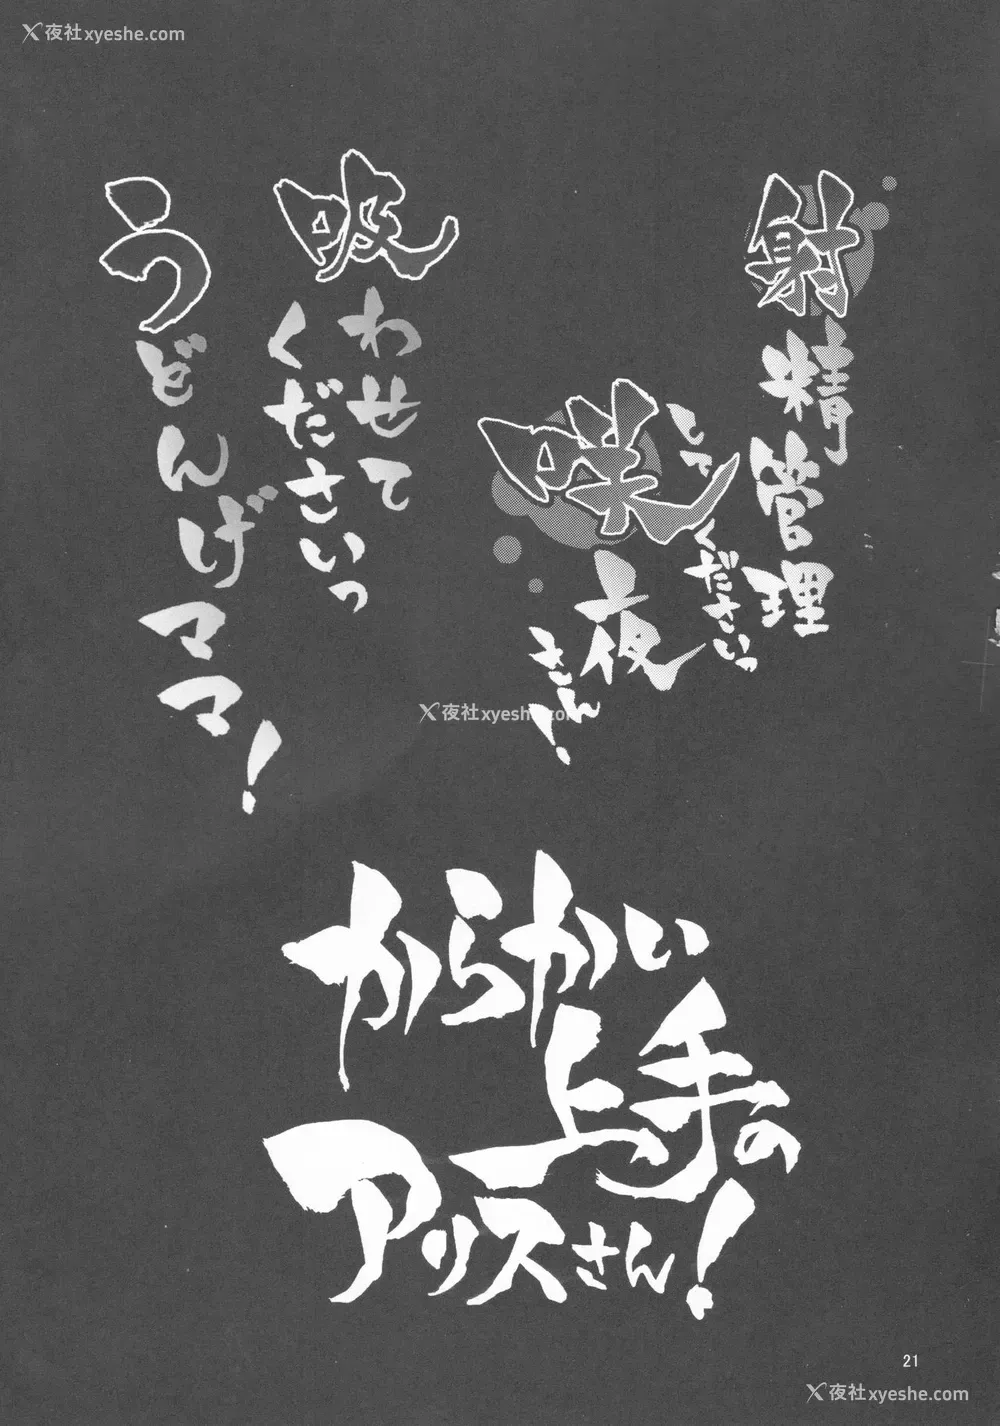 夜社xyeshe.com
射精管理
してくださいっ
咲夜
さん!
吸わせて
くださいっ
うどんげママ!
夜社xyeshe.com
からかい
上手の
アリスさん!
21
夜社xyeshe.com